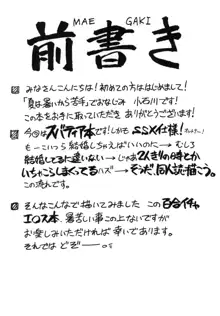 MAE GAKI
前書き
みなさんこんにちは!初めての方ははじめまして!
「夏は暑いから苦手」でおなじみ 小石川です!
この本をお手に取っていただき ありがとうございます!
今回はスパティア本です!しかも SSX仕様!
もーこいつら結婚しちゃえばいいのに → むしろ
結婚してるに違いない → じゃあ2人きりの時とか
いちゃこらしまくってるハズ → そうだ、同人誌描こう。
この流れです。
そんなこんなで描いてみました この百合イチャ
エロス本、暑苦しい事この上ないですが
お楽しみいただければ 幸いであります。
それでは どぞー